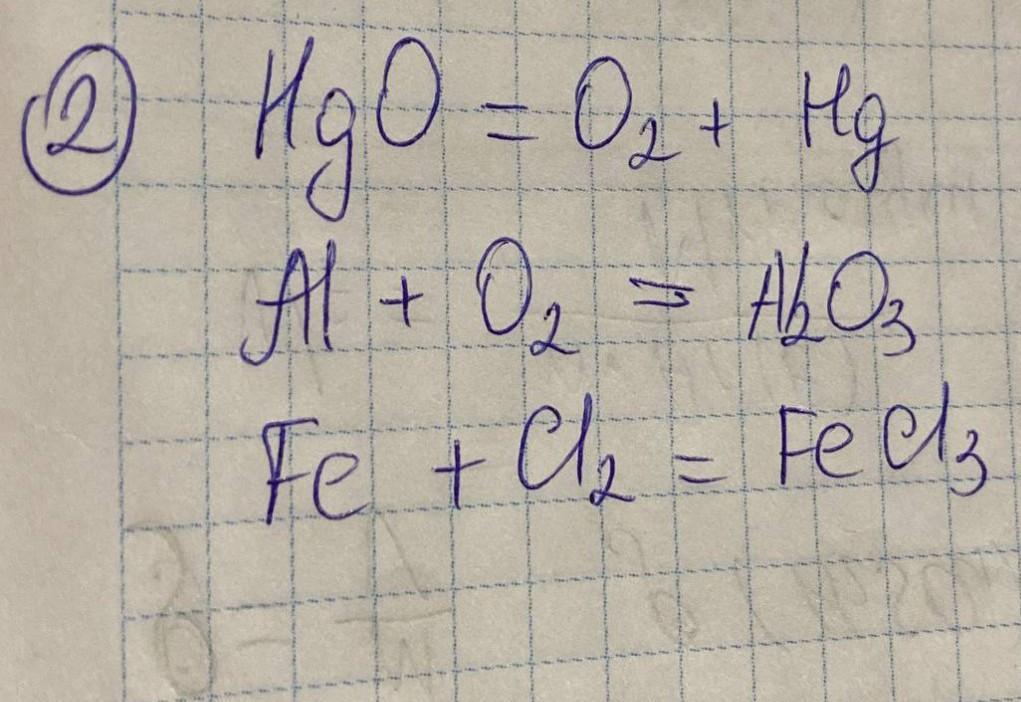 ② HgO = O₂ + Hg
Al + O₂ = Al₂O₃
Fe + Cl₂ = FeCl₃